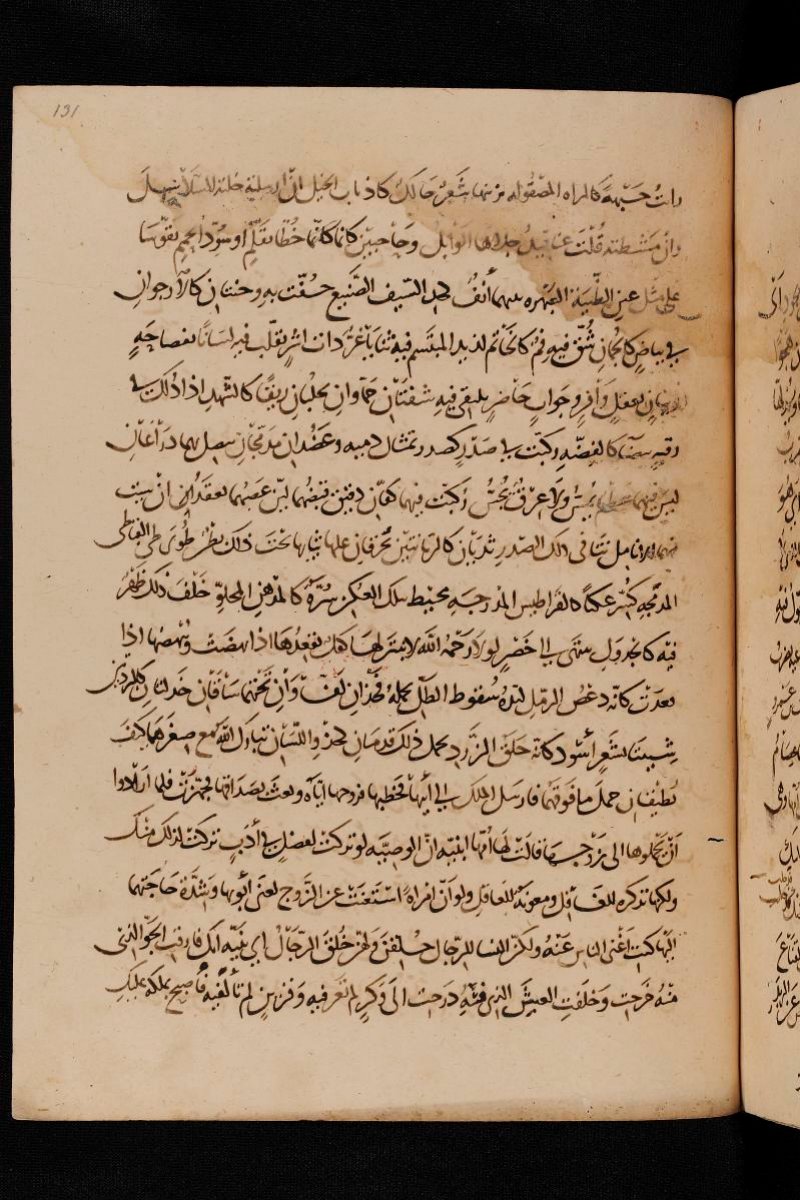 131
رات جبهة كالمراه المصقوله يزينها شعر حالك كاذناب الخيل ان ارسلته خلته السلاسل
وان مشطته قلت عناقيد جلاها الوابل وحاجبين كانما كانما خطا بقلم او سودا بحمم تقوسا
على مثل عين الظبية العبهره بينهما أنف كحد السيف الصنيع حفت به وجنتان كالارجوان
في بياض كالجمان شق فيه فم كالخاتم لذيذ المبتسم فيه ثنايا غر ذات اشر تقلب فيه لسانا بفصاحة
وبيان بعقل وافر وجواب حاضر يلتقى فيه شفتان حماوان يحلبان ريقا كالشهد اذا ذلك في
رقبه بيضا كالفضه ركبت في صدر كصدر تمثال دميه وعضدان مدمجان يتصل بهما ذراعان
ليس فيهما عظم يمس ولا عرق يجس ركبت فيهما كفان دقيق قصبهما لين عصبهما تعقد ان شيت
منهما الانامل نتا فى ذلك الصدر ثديان كالرمانتين يخرقان عليها ثيابها تحت ذلك بطن طوى طي القباطى
المدمجه كسر عكنا كالقراطيس المدرجه محيط بتلك العكن سرة كالمدهن المجلو خلف ذلك ظهر
فيه كالجدول ينتهى الى خصر لولا رحمة الله لانبتر لها كفل يقعدها اذا نهضت وينهضها اذا
قعدت كانه دعص الرمل لبده سقوط الطل يحمله فخذان لفا وان تحتهما ساقان خدلتان كالبرديتين
شيبتا بشعر أسود كانه حلق الزرد يحمل ذلك قدمان كحذو اللسان تبارك الله مع صغرهما كيف
تطيقان حمل ما فوقهما فارسل الملك الى أبيها فخطبها فزوجها اياه وبعث بصداقها فجهزت فلما ارادوا
ان يحملوها الى زوجها قالت لها امها اى بنيه ان الوصيه لو تركت لفضل في أدب تركت لذلك منك
ولكنها تذكره للغافل ومعونة للعاقل ولو أن امراة استغنت عن الزوج لغنى أبويها وشدة حاجتهما
اليها كنت اغنى الناس عنه ولكن النسا للرجال خلقن ولهن خلق الرجال اي بنيه انك فارقت الجو الذى
منه خرجت وخلفت العيش الذى فيه درجت الى وكر لم تعرفيه وقرين لم تألفيه فأصبح بملكه عليك